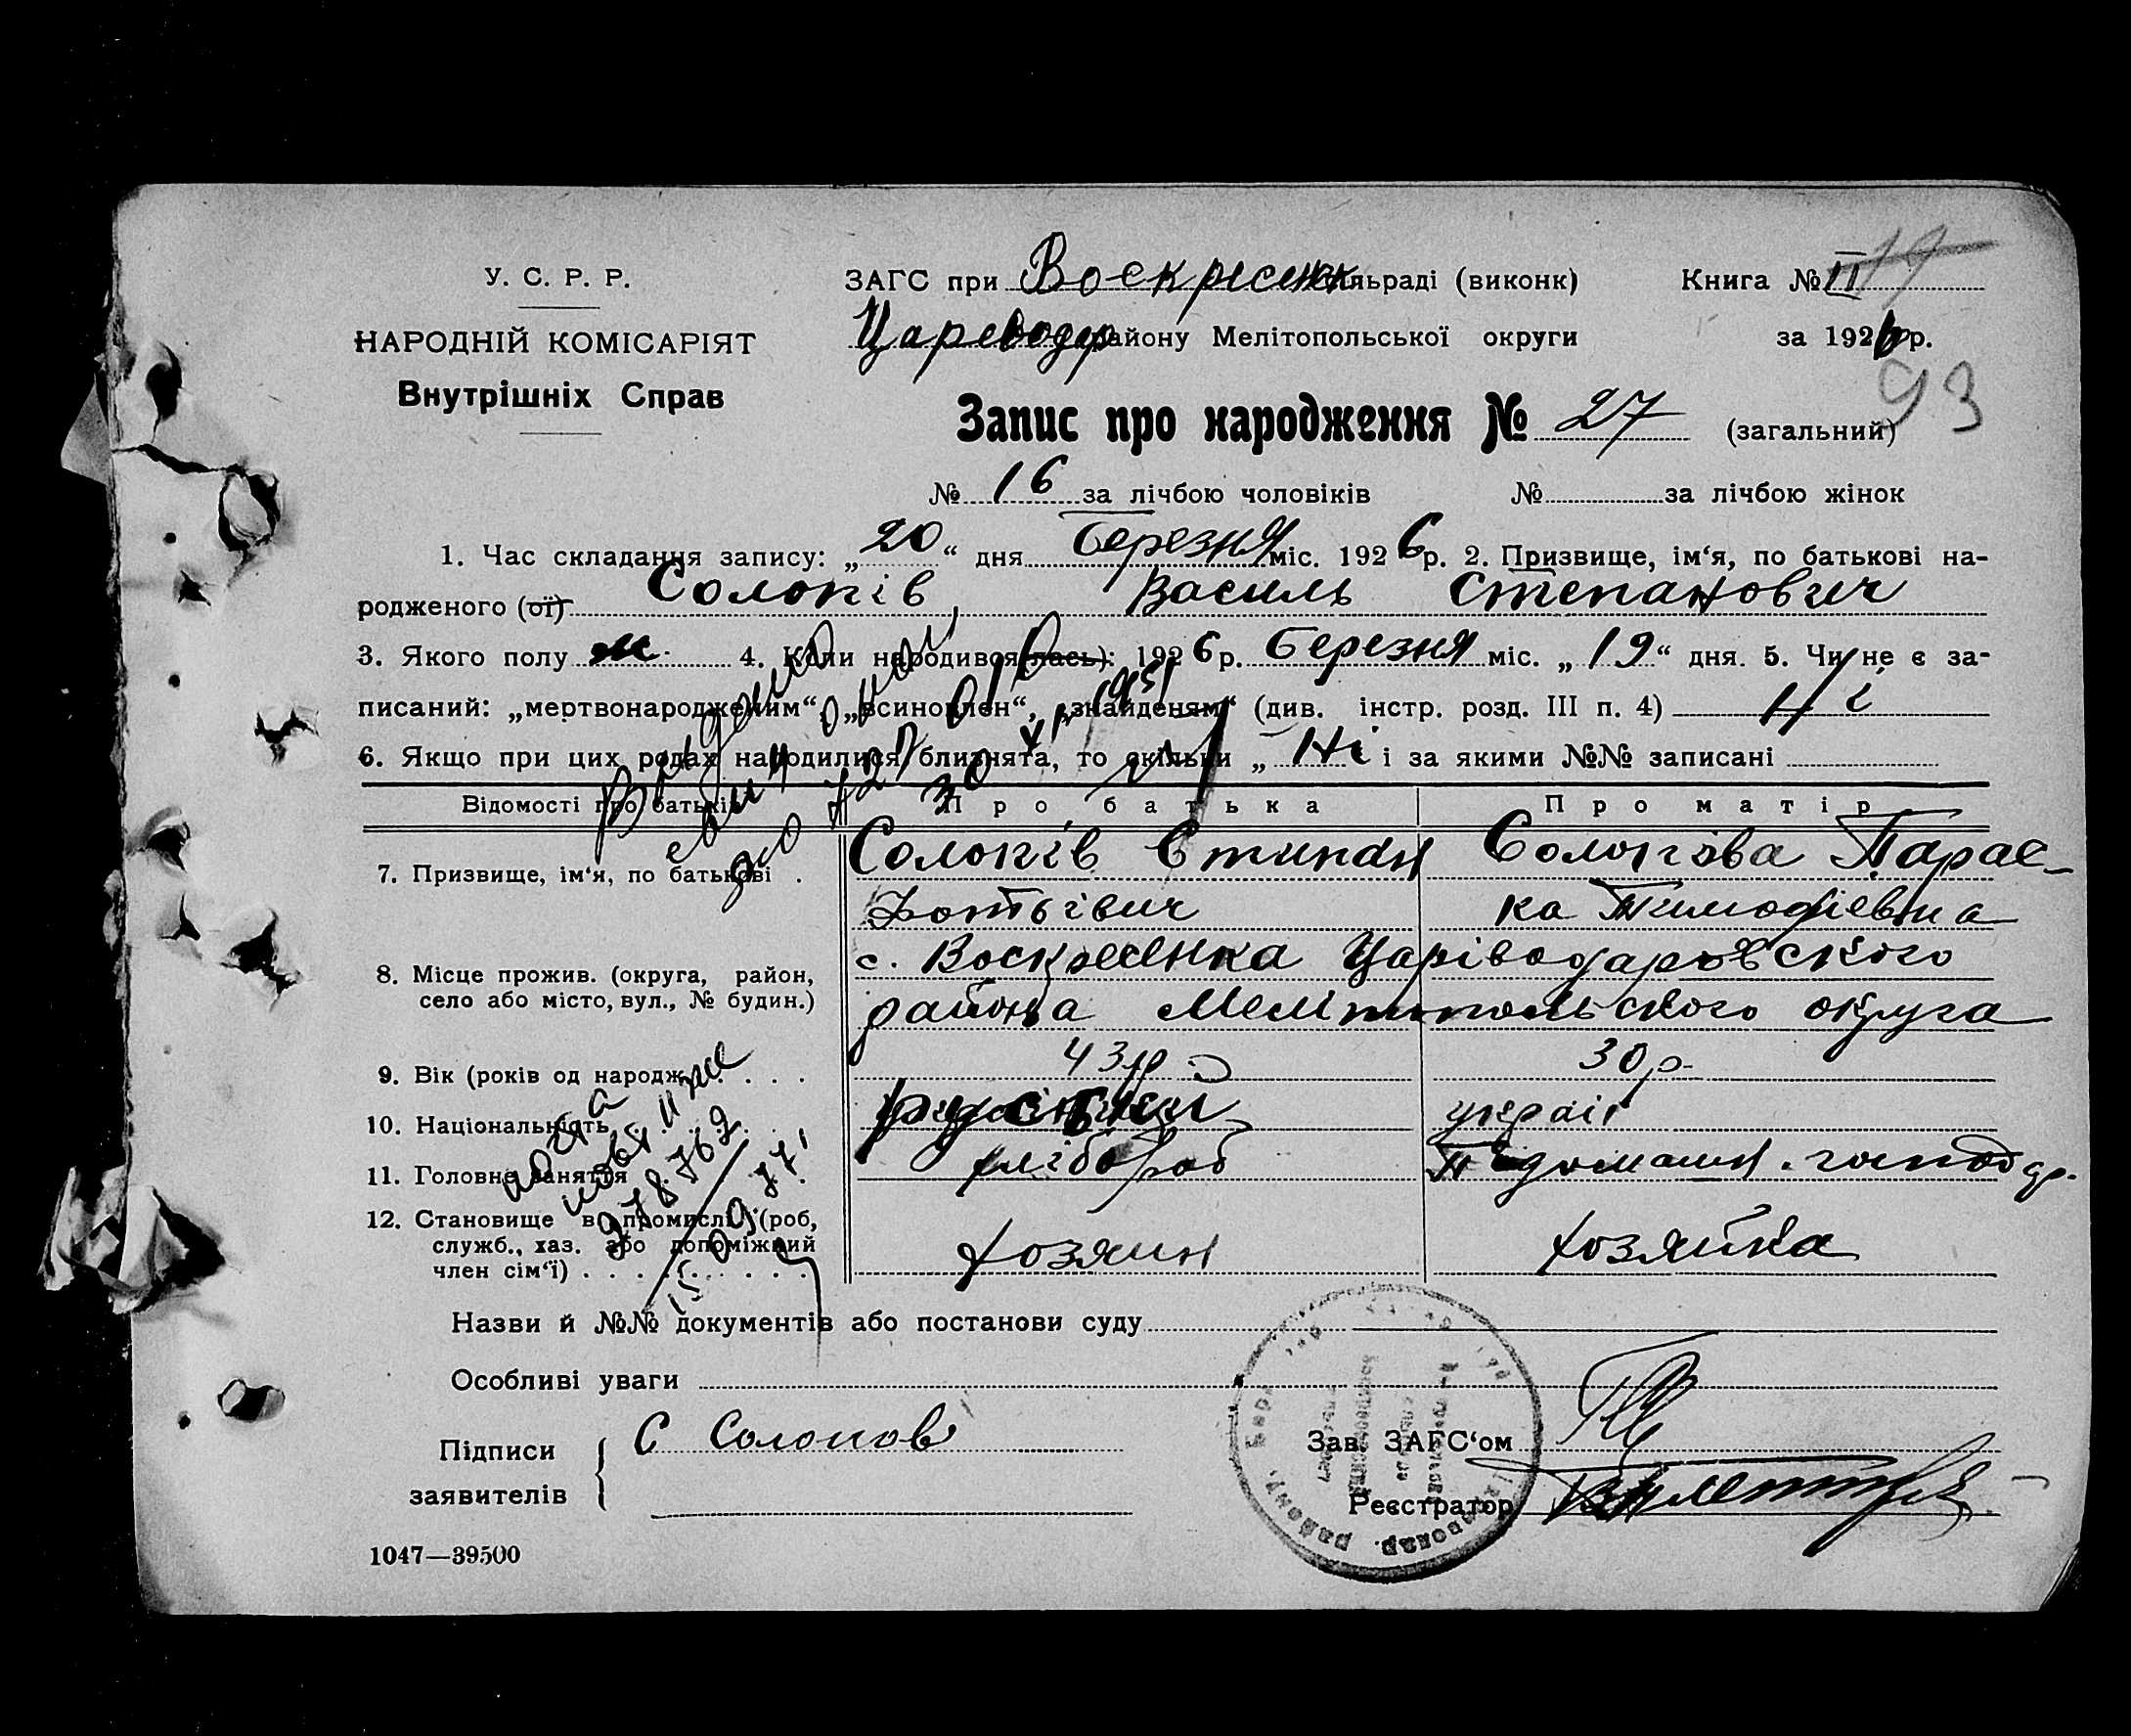 У. С. Р. Р.
НАРОДНІЙ КОМІСАРІЯТ
Внутрішніх Справ
ЗАГС при Воскресенк сільраді (виконк)
Цареводар району Мелітопольської округи
Книга № II 19
за 1926 р.
93
Запис про народження № 27 (загальний)
№ 16 за лічбою чоловіків № за лічбою жінок
1. Час складання запису: „20“ дня Березня міс. 1926 р. 2. Призвище, ім‘я, по батькові на-
родженого (ої) Солопів, Василь Степанович
3. Якого полу м. 4. Коли народився (лась): 1926 р. Березня міс. „19“ дня. 5. Чи не є за-
писаний: „мертвонародженим“, „всиновлен“, „знайденям“ (див. інстр. розд. III п. 4) Ні
6. Якщо при цих родах народилися близнята, то скільки „ Ні і за якими №№ записані
Відомості про батьків Про батька Про матір
7. Призвище, ім‘я, по батькові . Солопів Стипан Солопова Парас-
Фотьівич ка Тимофіевна
8. Місце прожив. (округа, район,
село або місто, вул., № будин.)
с. Воскресенка Царіводаровского
района Мелітопольского округа
9. Вік (років од народж.) . . . . 43 р 30 р.
10. Національність руський украі
11. Головне заняття хлібороб домашн. господар.
12. Становище в промислі (роб,
служб., хаз. або допоміжний
член сім‘ї) . . . . . . . . хозяин хозяйка
978762
15.09.77
Назви й №№ документів або постанови суду
Особливі уваги
Підписи
заявителів
С Солопов
Зав. ЗАГС‘ом
Реєстратор
1047—39500